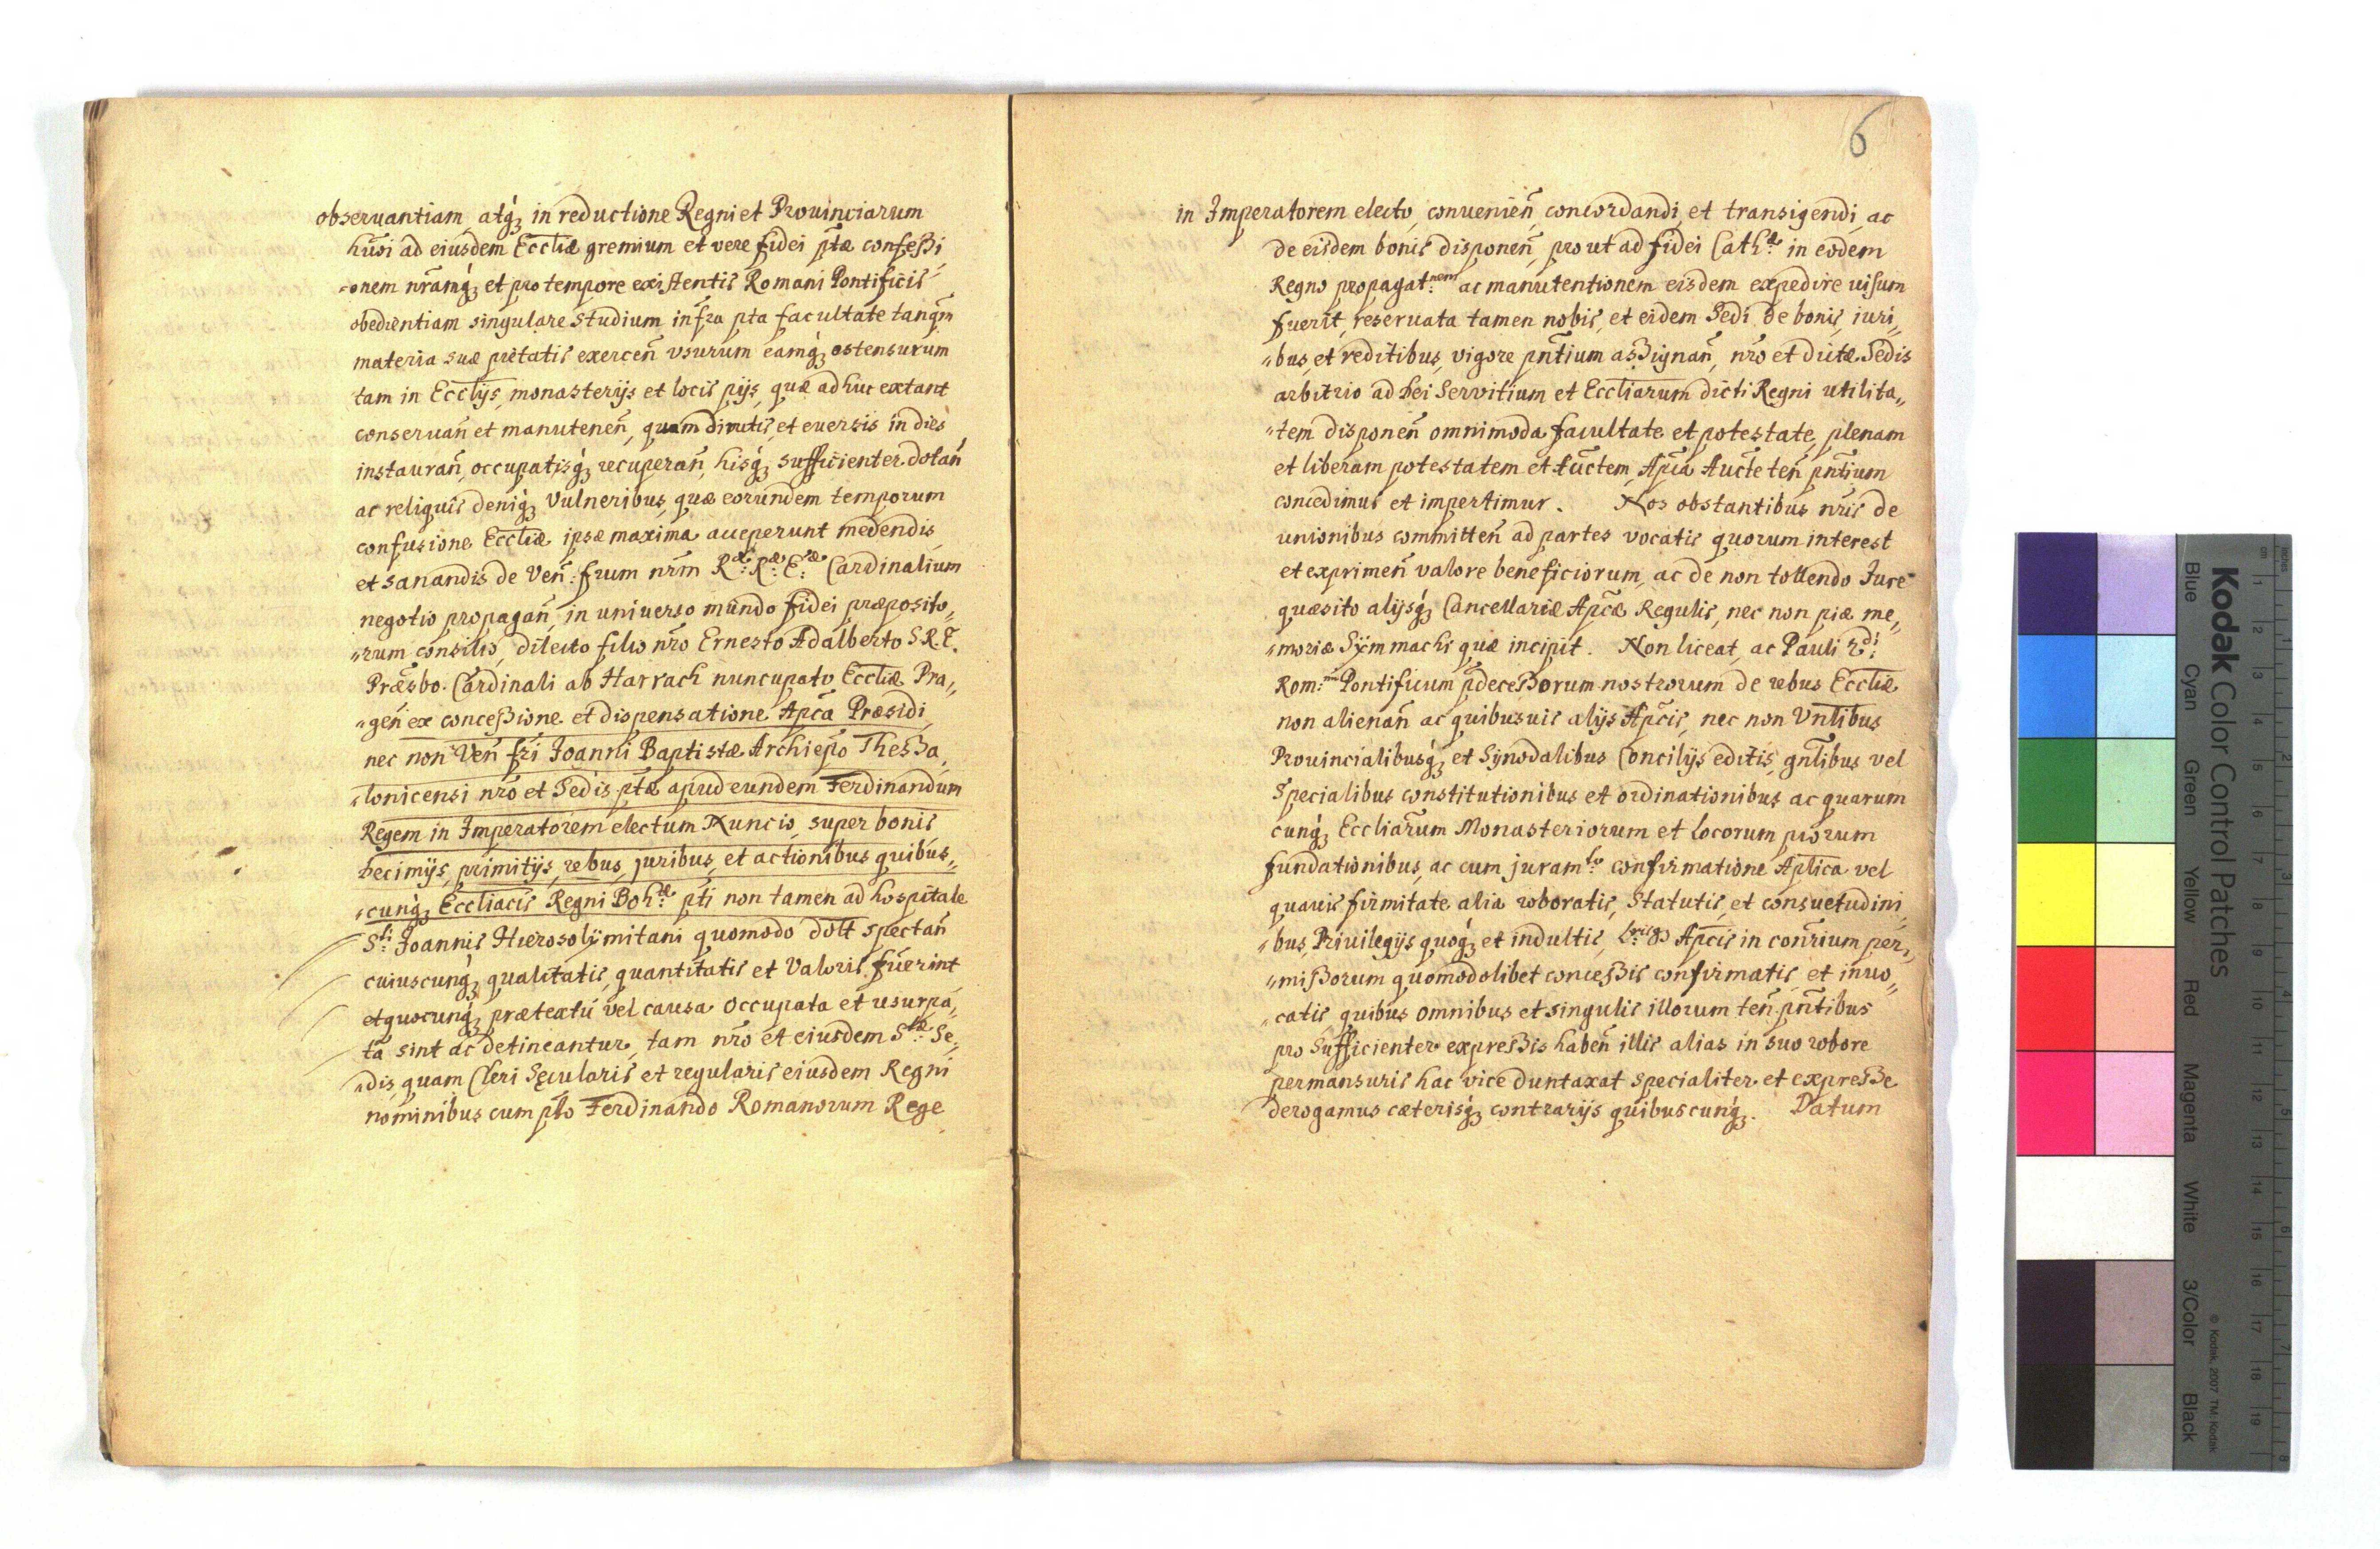 observantiam atq́ꝫ in reductione Regni et Prouinciarum
hūsi ad eiusdem Eccliæ gremium et vere fidei ptæ confeßi
-onem nr̄amq́ꝫ et pro tempore existentis Romani Pontificis
obedientiam singulare studium infra pta facultate tanqm̄
materia suæ pietatis exercen̄ vsurum eamq́ꝫ ostensurum
tam in Ecclijs, monasterijs et locis pijs, quæ adhuc extant
conseruan̄ et manutenen̄, quam dirutis, et euersis in dies
instauran̄, occupatisq́ꝫ recuperan̄, hisq́ꝫ sufficienter dotan̄
ac reliquis deniq́ꝫ Vulneribus, quæ eorundem temporum
confusione Eccliæ ipsæ maxima acceperunt medendis,
et sanandis de Ven̄: frum nr̄m R:æ R:æ E:æ Cardinalium
negotio propagan̄, in uniuerso mundo fidei præposito„
„rum consilio, dilecto filio nr̄o Ernesto Adalberto S.R.E.
Præsbo. Cardinali ab Harrach nuncupato Eccliæ Pra„
„gen̄ ex conceßione et dispensatione Apc̄a Præsidi,
nec non Ven̄ fri Joanni Baptistæ Archiep̄o Theßa„
„lonicensi nr̄o et Sedis ptæ apud eundem Ferdinandum
Regem in Imperatorem electum Nuncio, super bonis,
Decimijs, primitijs, rebus, juribus, et actionibus quibus„
„cunq́ꝫ Eccliacis Regni Boh:æ pti non tamen ad hospitale
S:ti Joannis Hierosolÿmitani quomodo dolt spectan̄
cuiuscunq́ꝫ qualitatis, quantitatis et Valoris fuerint
et quocunq́ꝫ prætextu vel causa occupata et usurpa„
ta sint ac detineantur, tam nr̄o et eiusdem S:tæ Se„
„dis, quam Cleri Sęcularis et regularis eiusdem Regni
nominibus cum pto Ferdinando Romanorum Rege
6
in Imperatorem electo, conuenien̄, concordandi, et transigendi, ac
de eisdem bonis disponen̄, prout ad fidei Cath:æ in eodem
Regno propagat:nem ac manutentionem eisdem expedire uisum
fuerit, reseruata tamen nobis, et eidem Sedi de bonis, iuri„
„bus, et reditibus, vigore pn̄tium aßignan̄, nr̄o et dictæ Sedis
arbitrio ad Dei Servitium et Eccliarum dicti Regni utilita„
„tem disponen̄ omnimoda facultate et potestate, plenam
et liberam potestatem et Auctem, Apc̄a Aucte ten̄ pn̄tium
concedimus et impertimur. Nos obstantibus nr̄is de
unionibus committen̄ ad partes vocatis quorum interest
et exprimen̄ valore beneficiorum, ac de non tollendo Jure
quæsito alijsq́ꝫ Cancellariæ Apc̄æ Regulis, nec non piæ me„
„moriæ Sÿmmachi quæ incipit. Non liceat, ac Pauli 2:di
Rom: Pontificum p̄deceßorum nostrorum de rebus Eccliæ
non alienan̄ ac quibusuis alijs Apc̄is, nec non Vn̄libus
Prouincialibusq́ꝫ et Synodalibus Concilijs editis, gn̄libus vel
Specialibus constitutionibus et ordinationibus ac quarum
cunq́ꝫ Eccliarum Monasteriorum et Locorum piorum
fundationibus, ac cum juram:to confirmatione Aplica vel
quauis firmitate alia roboratis, Statutis, et consuetudini„
„bus, Priuilegijs quoq́ꝫ et indultis, Apc̄is in con̄rium per„
„mißorum quomodolibet conceßis confirmatis, et inno„
„catis quibus omnibus et singulis illorum ten̄ pn̄tibus
pro Sufficienter expreßis haben̄ illis alias in suo robore
permansuris hac vice duntaxat specialiter et expreße
derogamus cæterisq́ꝫ contrarijs quibuscunq́ꝫ. Datum
Kodak Color Control Patches
Blue Cyan Green Yellow Red Magenta White 3/Color Black
© Kodak, 2007 TM: Kodak